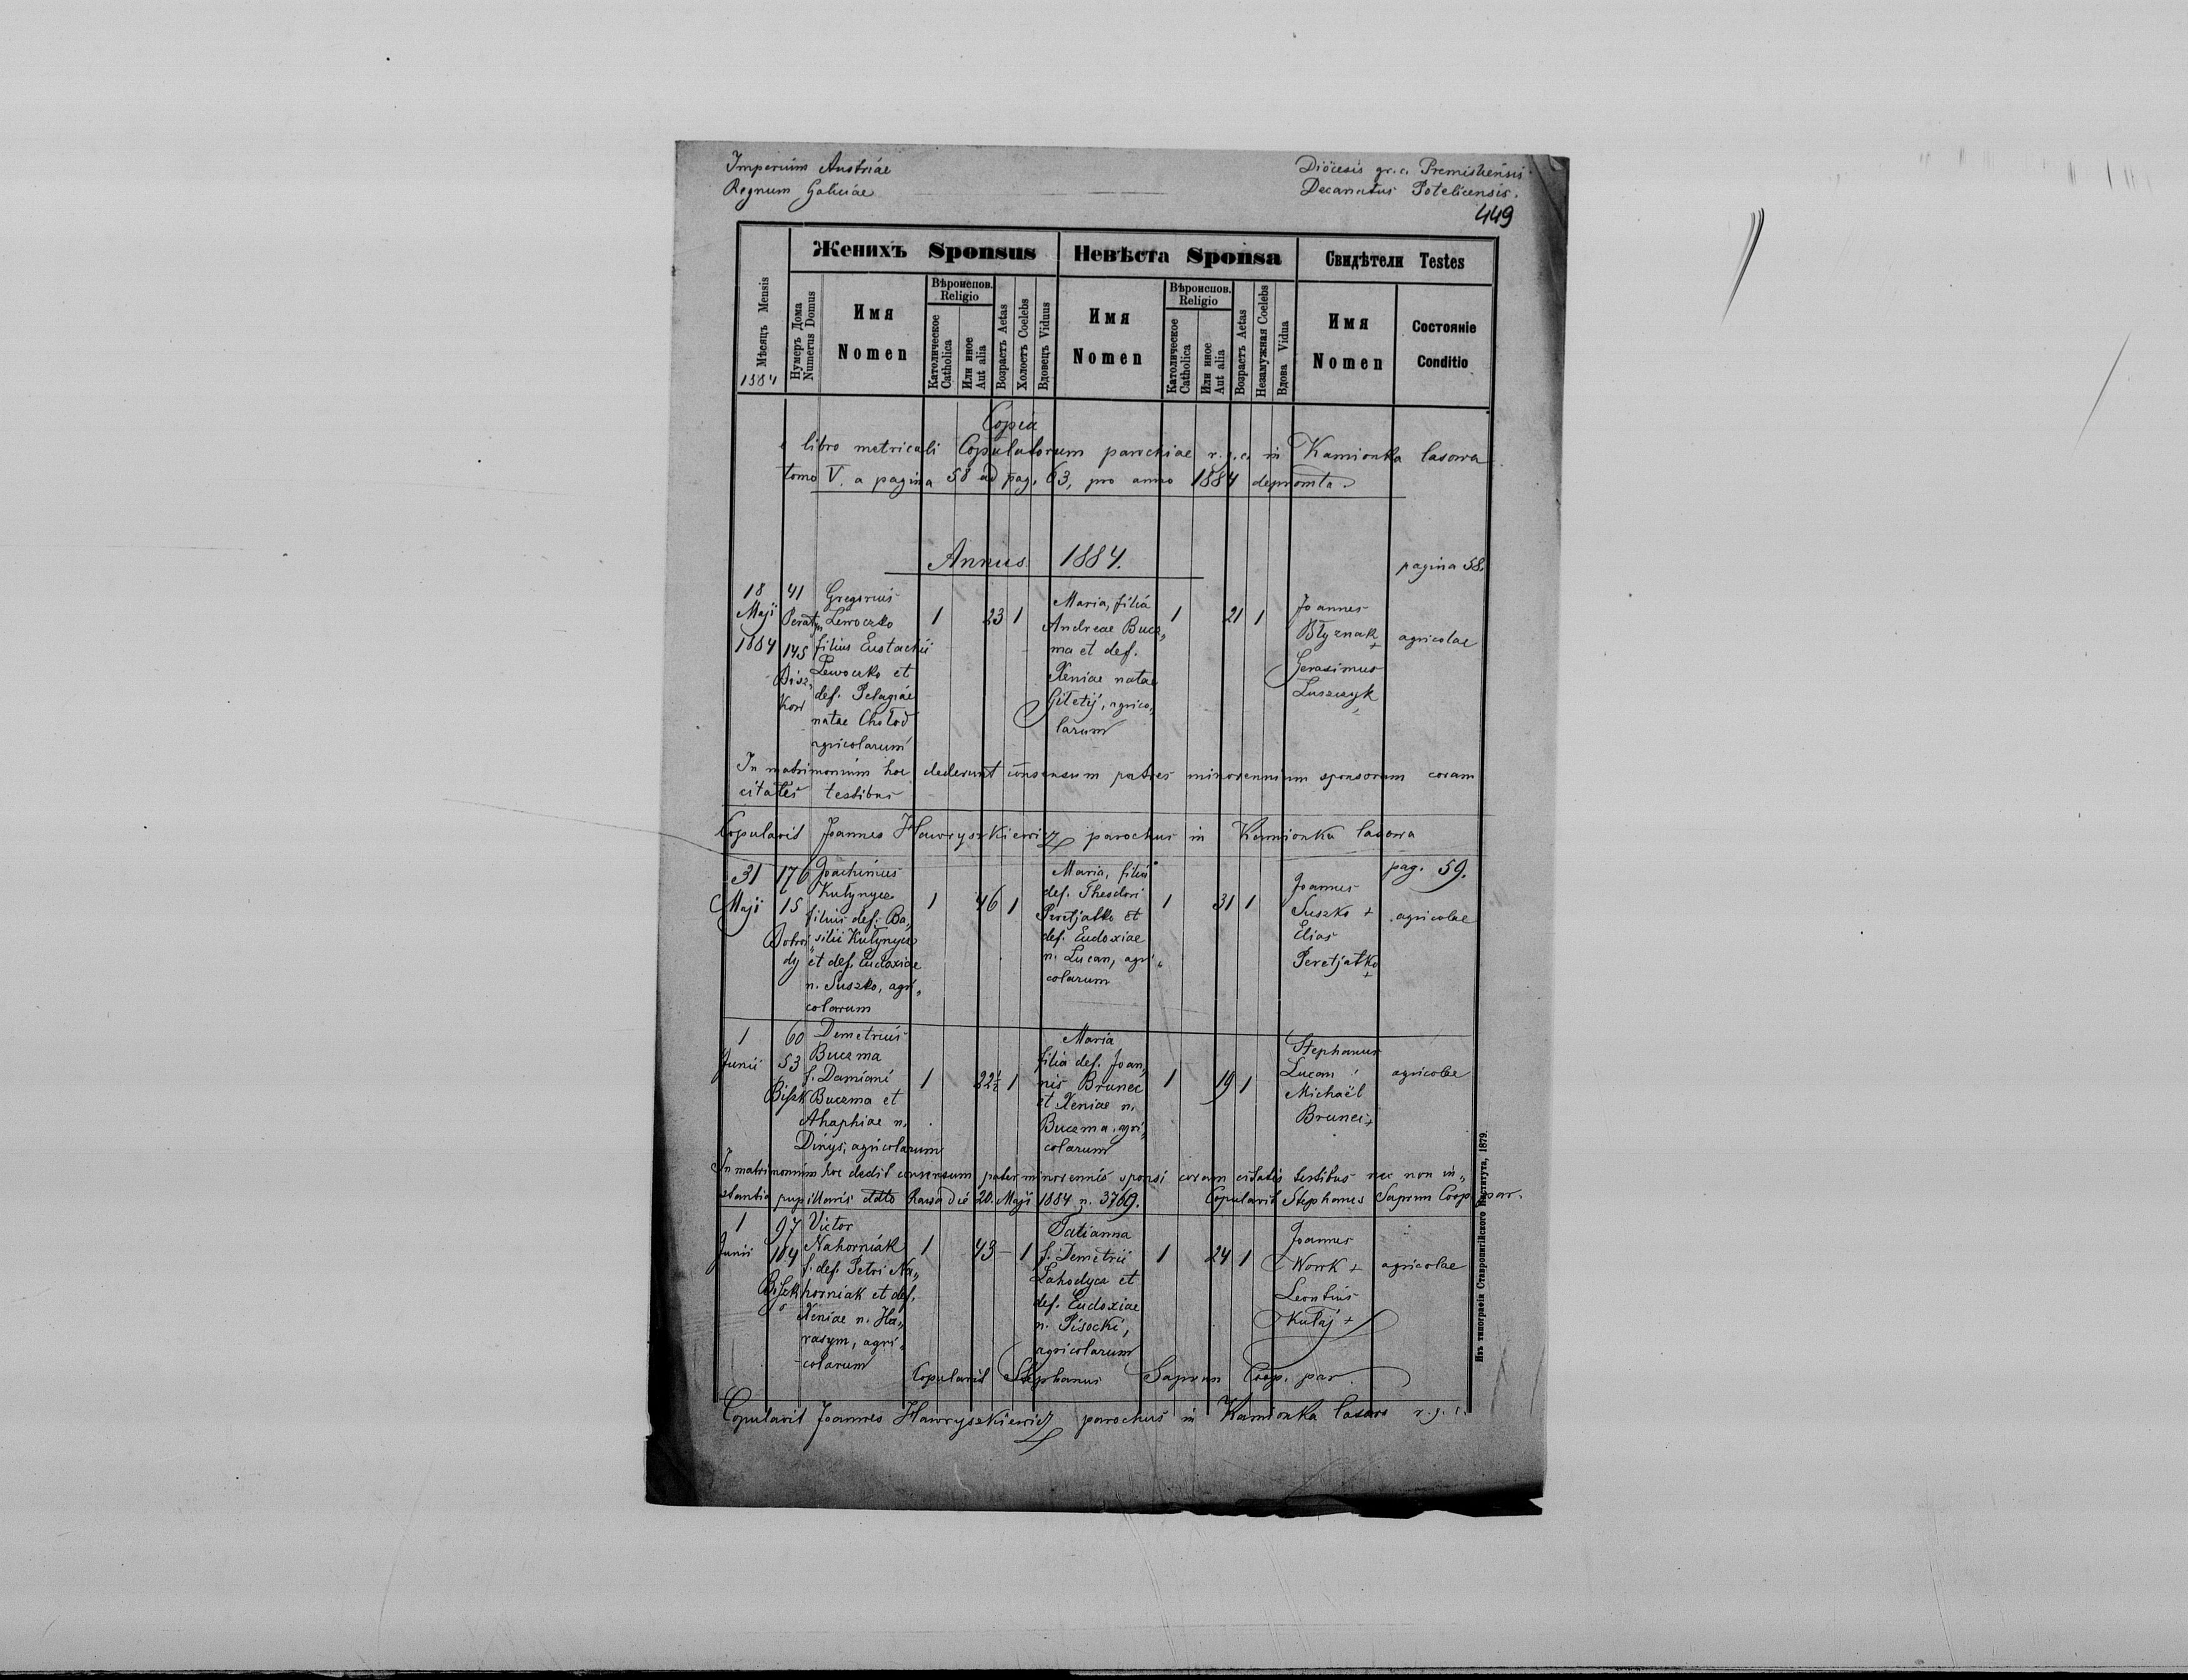 Imperium Austriae
Regnum Galiciae
Diöcesis gr. c. Premisliensis
Decanatus Potelicensis.
449
Мѣсяцъ Mensis
1884
Женихъ Sponsus
Невѣста Sponsa
Свидѣтели Testes
Нумеръ Дома
Numerus Domus
Имя
Nomen
Вѣроиспов.
Religio
Католическое
Catholica
Или иное
Aut alia
Возрастъ Aetas
Холостъ Coelebs
Вдовецъ Viduus
Имя
Nomen
Вѣроиспов.
Religio
Католическое
Catholica
Или иное
Aut alia
Возрастъ Aetas
Незамужная Coelebs
Вдова Vidua
Имя
Nomen
Состояніе
Conditio
Copia
e libro metricali Copulatorum parochiae r. g. c. in Kamionka lasowa
tomo V. a pagina 58 ad pag. 63, pro anno 1884 depromta.
Annus 1884.
pagina 58.
18
Maji
1884
41
145
Gregorius
Lewoczko
filius Eustachii
Lewoczko et
def. Pelagiae
natae Chołod
agricolarum
1
23
1
Maria, filia
Andreae Bucz„
ma et def.
Xeniae natae
Giletij, agrico„
larum
1
21
1
Joannes
Błyznak +
Gerasimus
Luszczyk
agricolae
In matrimonium hoc dederunt consensum patres minorennium sponsorum coram
citatis testibus
Copulavit Joannes Hawryszkiewicz parochus in Kamionka lasowa
pag. 59.
31
Maji
176
15
Joachimus
Kułynycz
filius def. Ba„
silii Kułynycz
et def. Eudoxiae
n. Suszko, agri„
colarum
1
46
1
Maria, filia
def. Theodori
Peretjatko et
def. Eudoxiae
n. Lucan, agri„
colarum
1
31
1
Joannes
Suszko +
Elias
Peretjatko
+
agricolae
1
Junii
60
53
Biszk
Demetrius
Buczma
f. Damiani
Buczma et
Ahaphiae n.
Dinys, agricolarum
1
22½
1
Maria
filia def. Joan„
nis Brunec
et Xeniae n.
Buczma, agri„
colarum
1
19
1
Stephanus
Lucan
Michaël
Brunec +
agricolae
In matrimonium hoc dedit consensum pater minorennis sponsi coram citatis testibus nec non in„
stantia pupillaris ddto Rawa die 20. Maji 1884 n. 3769. Copulavit Stephanus Saprun Coop. par.
1
Junii
97
104
Biszk
Victor
Nahorniak
f. def. Petri Na„
horniak et def.
Xeniae n. Ha„
rasym, agri„
colarum
1
43
—
1
Tatianna
f. Demetrii
Lahodycz et
def. Eudoxiae
n. Pisocki,
agricolarum
1
24
1
Joannes
Wowk +
Leontius
Kułaj +
agricolae
Copulavit Stephanus Saprun Coop. par.
Copulavit Joannes Hawryszkiewicz parochus in Kamionka lasowa r. g. c.
Изъ типографіи Ставропигійского Института, 1879.